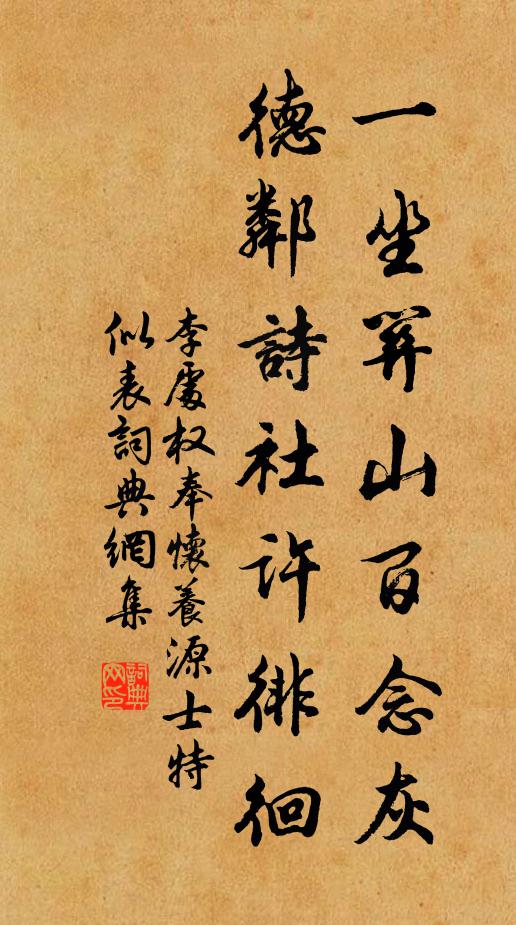 一坐笄山百念灰
德鄰詩社許徘徊
李處权奉懷養源士特
似表詞典網集
詞典
网印